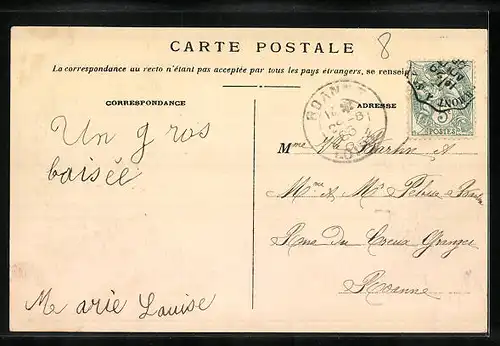 8
CARTE POSTALE
La correspondance au recto n'étant pas acceptée par tous les pays étrangers, se rensei
CORRESPONDANCE
ADRESSE
ROANNE
POSTES
Un gros
baisée
Marie Louise
Mme Vve Barlin et
Mme et Mr
Rue du Creux Granger
Roanne